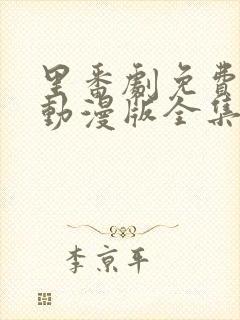 里番劇免費
動漫版全集
李京平